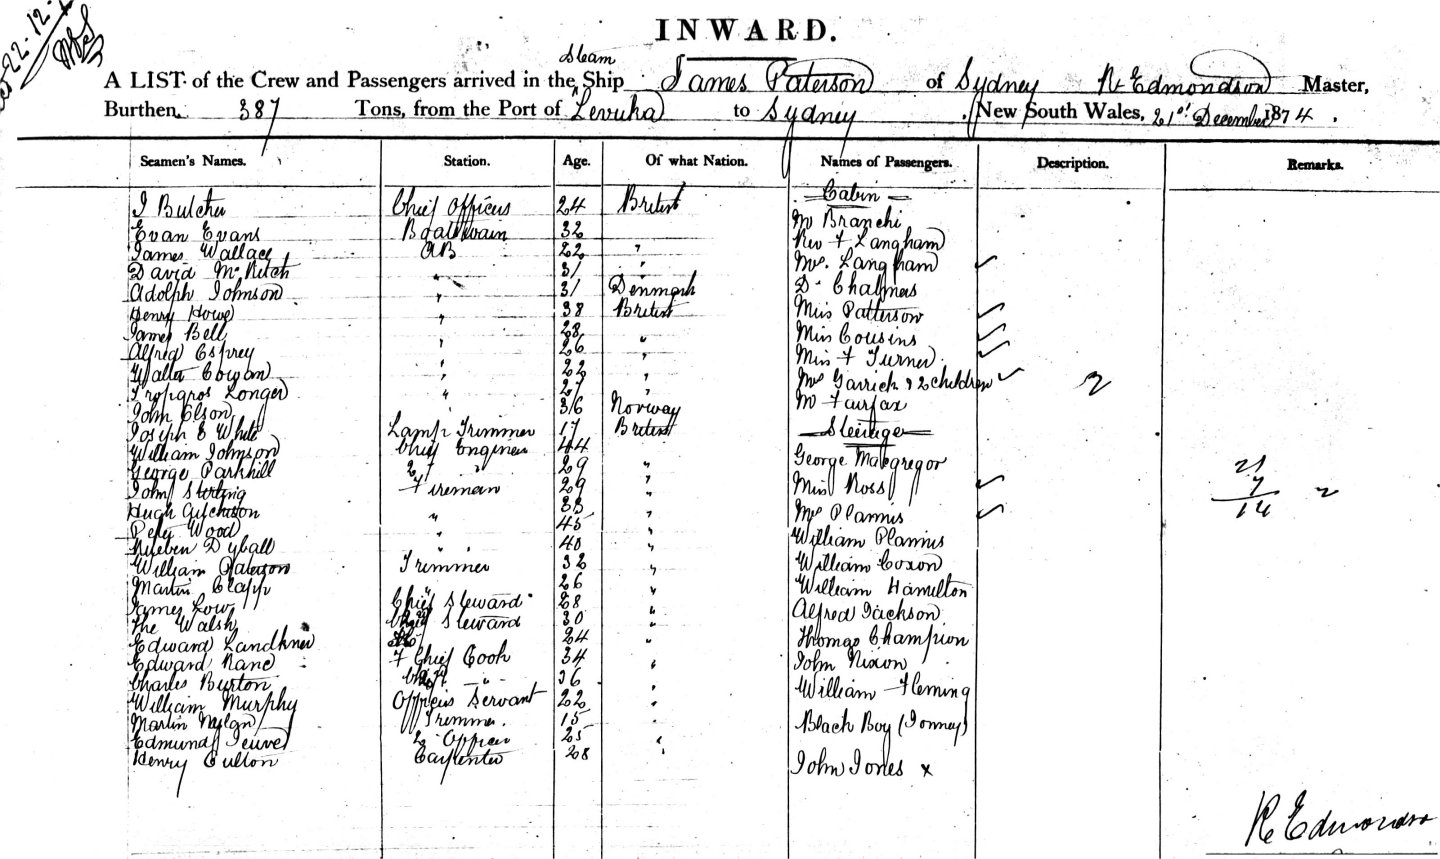 22-12-
INWARD.
Steam
A LIST of the Crew and Passengers arrived in the Ship James Paterson of Sydney R Edmondson Master,
Burthen 387 Tons, from the Port of Levuka to Sydney New South Wales, 21st December 1874.
Seamen's Names. Station. Age. Of what Nation. Names of Passengers. Description. Remarks.
Cabin
J Butcher Chief Officer 24 British
Mr Branchi
Evan Evans Boatswain 32
Rev F Langham
James Wallace AB 22 "
Mrs. Langham ✓
David 31 "
Adolph Johnson " 31 Denmark Dr Chalmers
Henry Howe " 38 British Miss Patterson ✓
James Bell " 28 " Miss Cousins ✓
Alfred Esprey " 26 " Miss F Turner ✓
Walter Cowan " 22 " Mrs Garrick & 2 children ✓ 2
Longer " 27 "
John Olson 36 Norway Mr Fairfax
Joseph E White Lamp Trimmer 17 British Steerage
William Johnson Chief Engineer 44
George Parkhill 2 " 29 " George Macgregor 21
John Stirling Fireman 29 " Miss Ross ✓ 7 2
Hugh " 33 " Mrs Plannis ✓ 14
Peter Wood " 45 "
Rueben Dyball " 40 " William Plannis
William Paterson Trimmer 32 " William Coxon
Martin Clapp " 26 " William Hamilton
James Low Chief Steward 28 " Alfred Jackson
Walsh Steward 30 "
Edward Landkner 24 " Thomas Champion
Edward Nane F Chief Cook 34 " John Nixon
Charles Burton " 36 "
William Murphy Officers Servant 22 " William Fleming
Martin Nylan Trimmer. 15 " Black Boy (Tonney)
Edmund 2 Officer 25 "
Henry Culton Carpenter 28 " John Jones x
R Edmondson